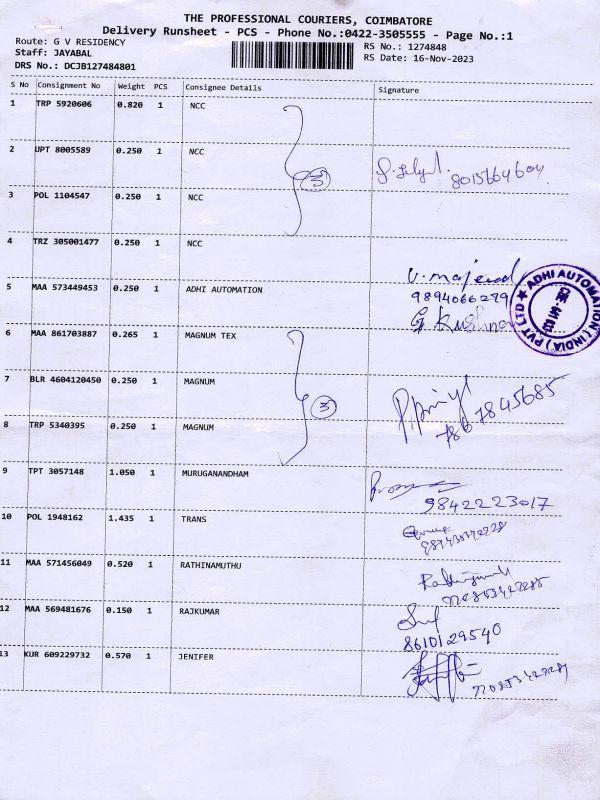 THE PROFESSIONAL COURIERS, COIMBATORE
Delivery Runsheet - PCS - Phone No.:0422-3505555 - Page No.:1
Route: G V RESIDENCY
RS No.: 1274848
Staff: JAYABAL
RS Date: 16-Nov-2023
DRS No.: DCJB127484801
S No Consignment No Weight PCS Consignee Details Signature
1 TRP 5920606 0.820 1 NCC
2 UPT 8005589 0.250 1 NCC
3 POL 1104547 0.250 1 NCC
8015664604
4 TRZ 305001477 0.250 1 NCC
5 MAA 573449453 0.250 1 ADHI AUTOMATION
9894066279
ADHI AUTOMATION (INDIA) PVT LTD
6 MAA 861703887 0.265 1 MAGNUM TEX
7 BLR 4604120450 0.250 1 MAGNUM
3
8 TRP 5340395 0.250 1 MAGNUM
7867845685
9 TPT 3057148 1.050 1 MURUGANANDHAM
9842223017
10 POL 1948162 1.435 1 TRANS
11 MAA 571456049 0.520 1 RATHINAMUTHU
12 MAA 569481676 0.150 1 RAJKUMAR
8610129540
13 KUR 609229732 0.570 1 JENIFER